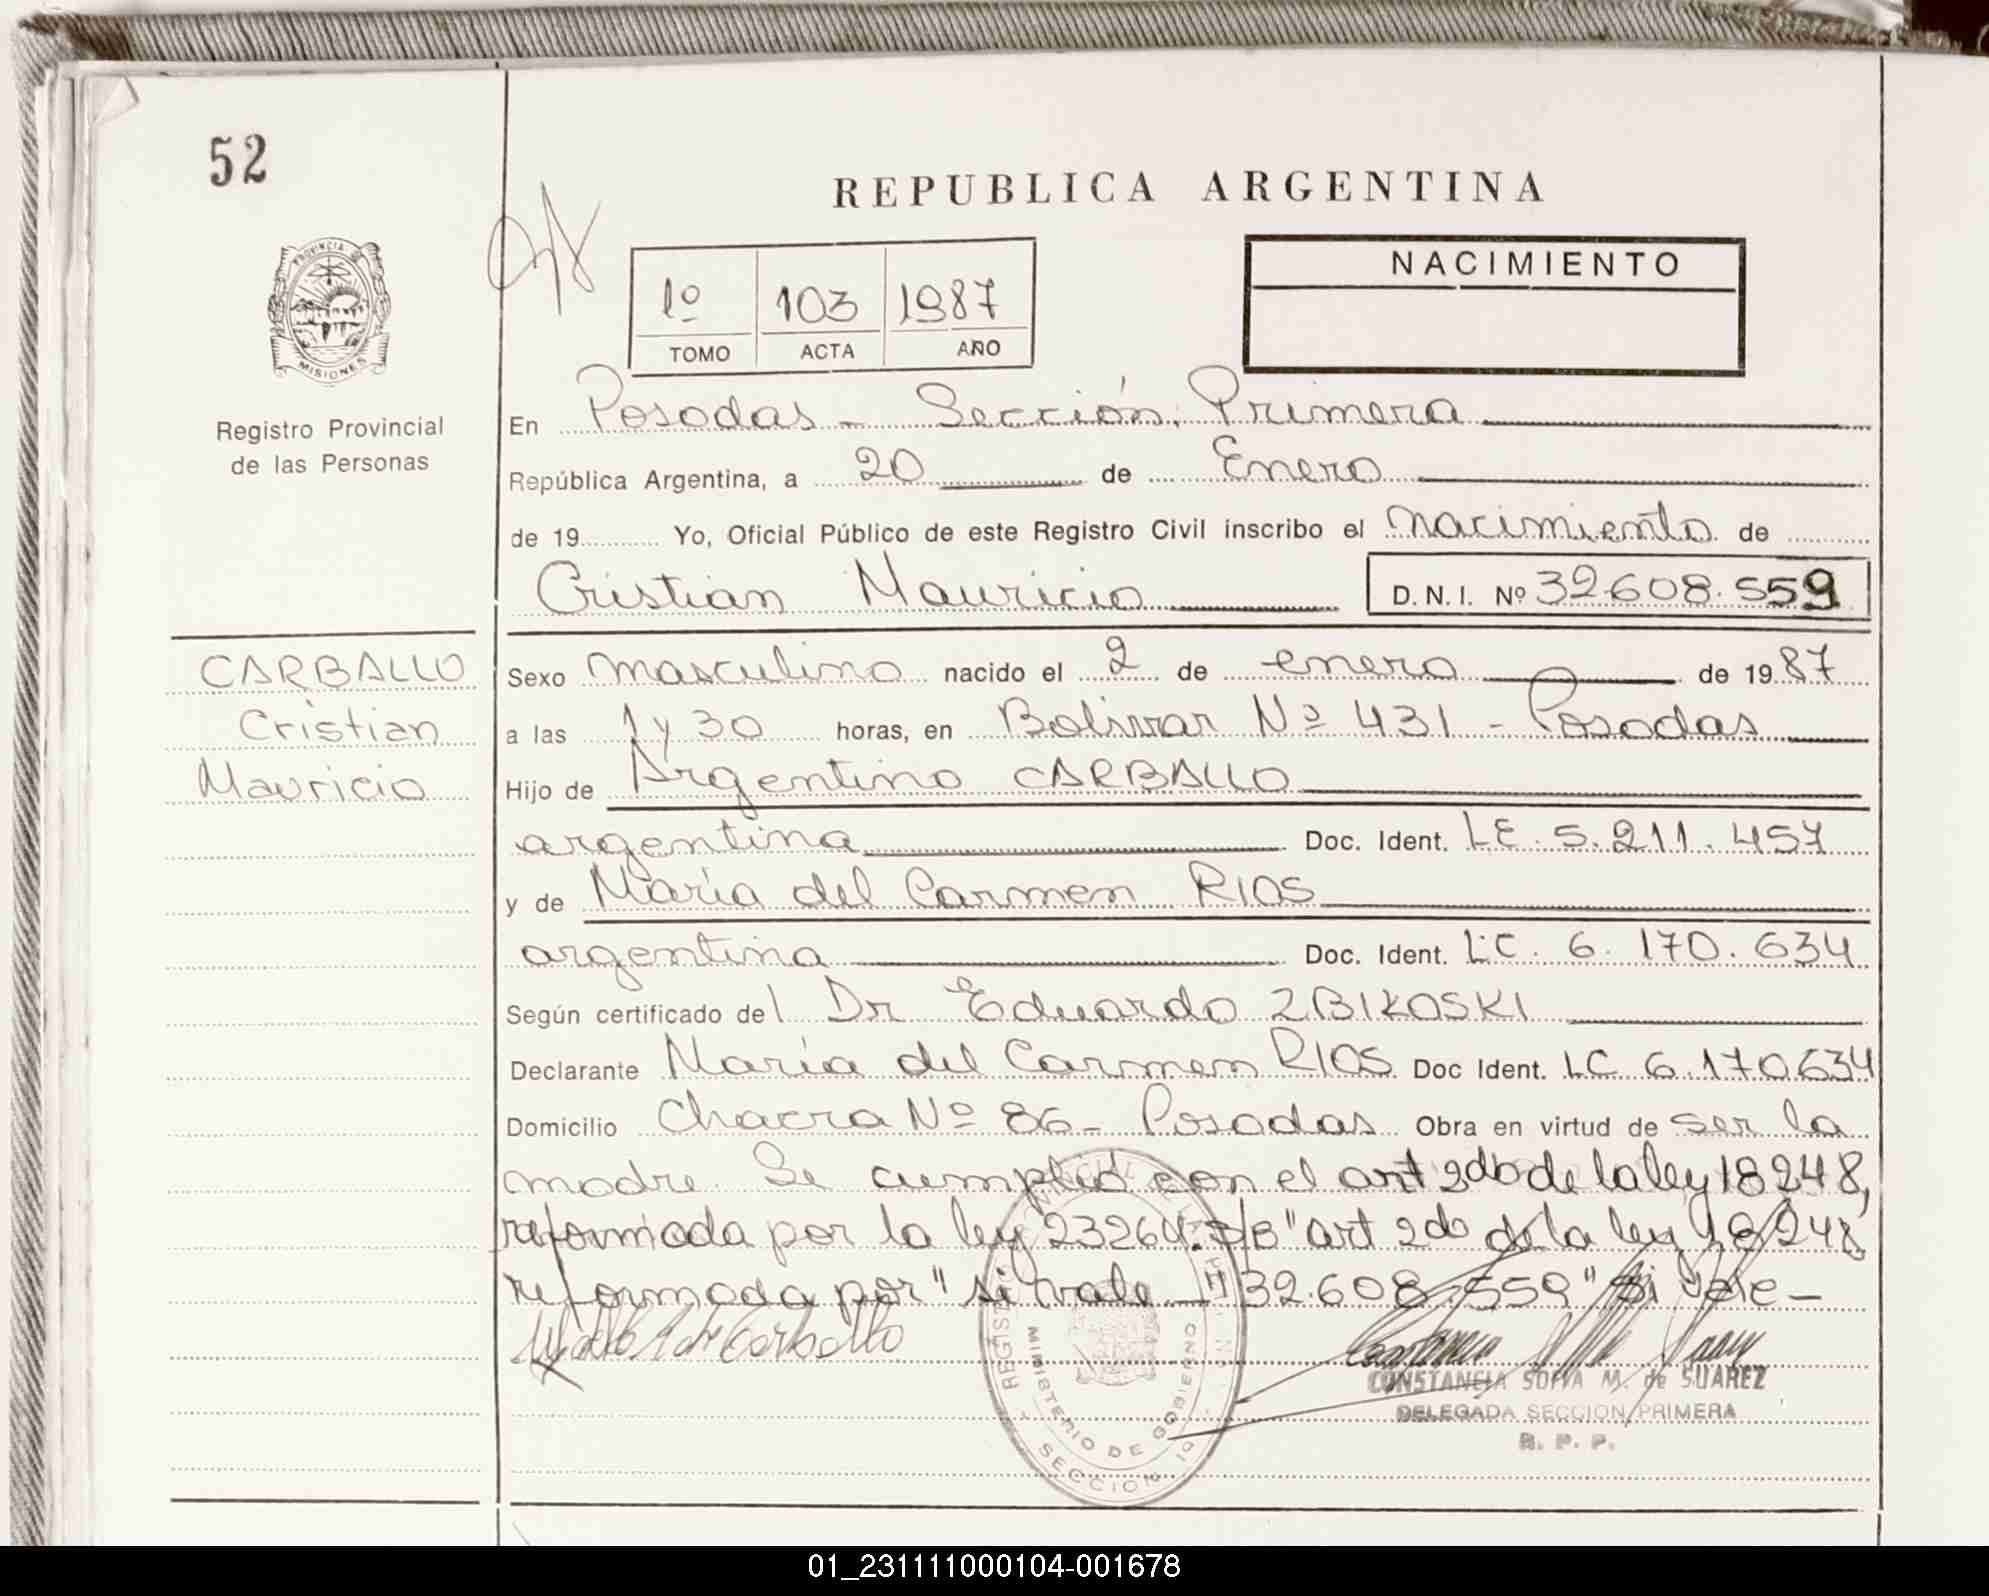 52
REPUBLICA ARGENTINA
PROVINCIA DE
MISIONES
Registro Provincial
de las Personas
1º 103 1987
TOMO ACTA AÑO
NACIMIENTO
En Posadas - Sección Primera
República Argentina, a 20 de Enero
de 19 Yo, Oficial Público de este Registro Civil inscribo el nacimiento de
Cristian Mauricio D.N.I. Nº 32.608.559
CARBALLO
Cristian
Mauricio
Sexo masculino nacido el 2 de enero de 1987
a las 1 y 30 horas, en Bolivar Nº 431 - Posadas
Hijo de Argentino CARBALLO
argentina Doc. Ident. LE. 5.211.457
y de María del Carmen RIOS
argentina Doc. Ident. LC. 6.170.634
Según certificado del Dr Eduardo ZBIKOSKI
Declarante María del Carmen RIOS Doc Ident. LC 6.170.634
Domicilio Chacra Nº 86 - Posadas Obra en virtud de ser la
madre. Se cumplió con el art 2do de la ley 18248,
reformada por la ley 23264. S/B "art 2do de la ley 18248
reformada por" si vale - "32.608.559" si vale -
CONSTANCIA SOFIA M. de SUAREZ
DELEGADA SECCION PRIMERA
R. P. P.
MINISTERIO DE GOBIERNO
SECCION 1
01_231111000104-001678